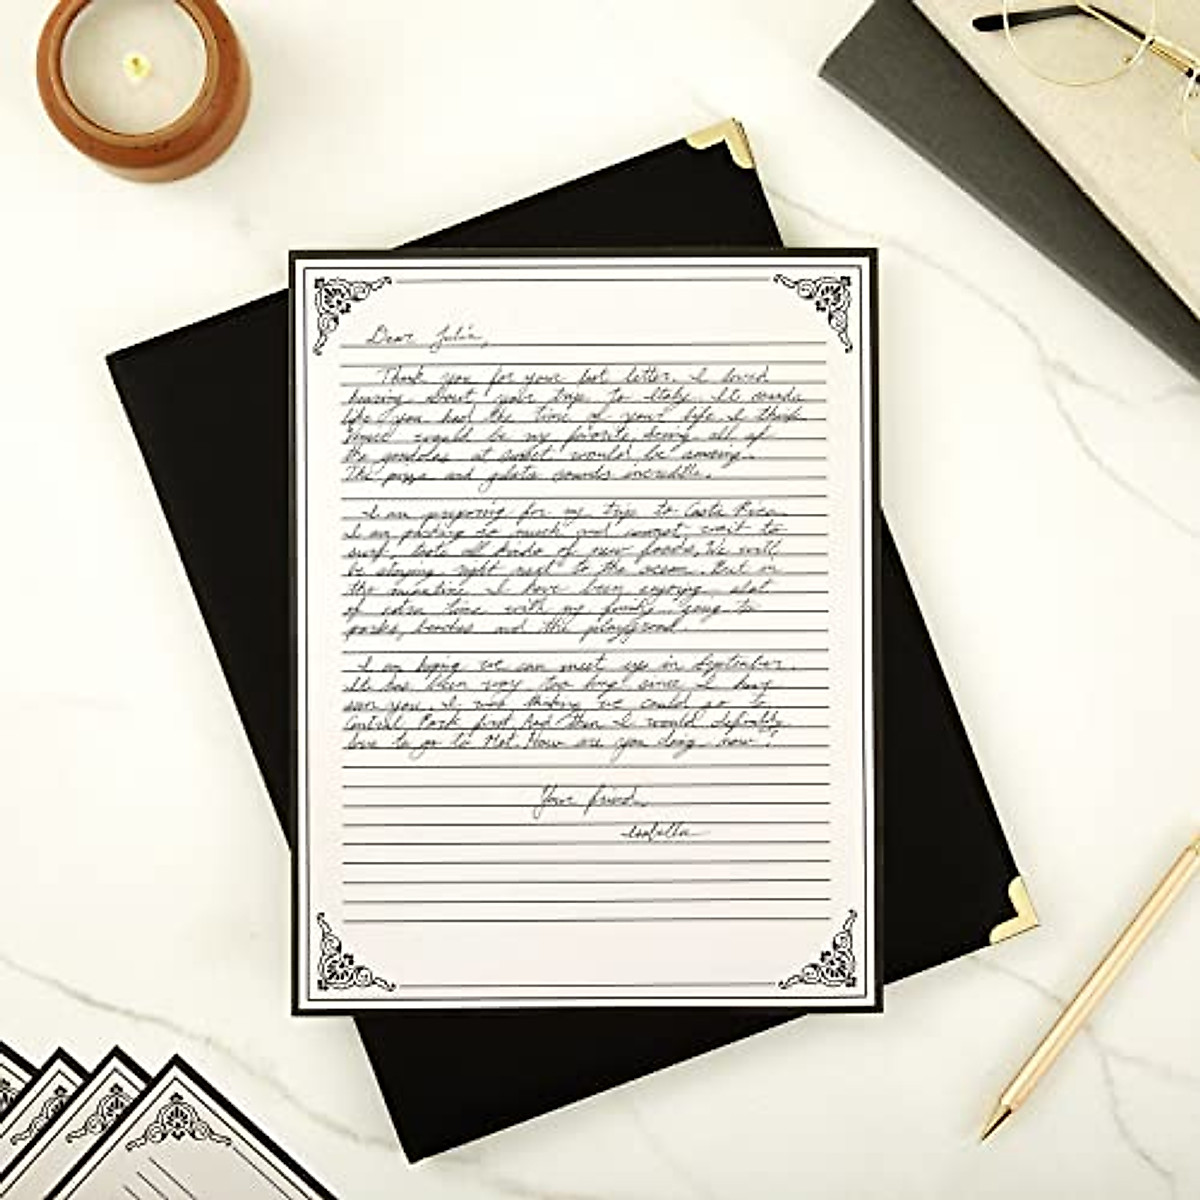 Dear Julia,
Thank you for your last letter. I loved
hearing about your trip to Italy. It sounds
like you had the time of your life. I think
Venice would be my favorite, seeing all of
the gondolas at sunset would be amazing.
The pizza and gelato sounds incredible.
I am preparing for my trip to Costa Rica.
I am packing so much and cannot wait to
surf, taste all kinds of new foods. We will
be staying right next to the ocean. But in
the meantime I have been enjoying alot
of extra time with my family going to
parks, beaches and the playground.
I am hoping we can meet up in September.
It has been way too long since I have
seen you. I was thinking we could go to
Central Park first. And then I would definitely
love to go to Met. How are you doing now?
Your friend,
Isabella